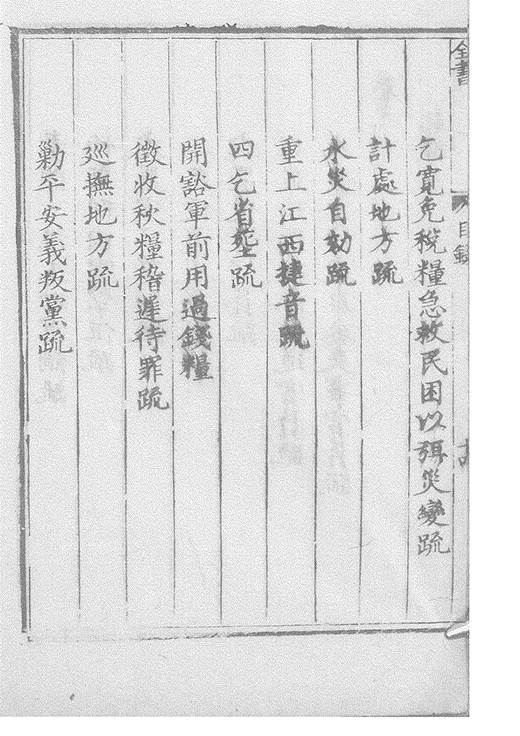 全書
目錄
乞寬免稅糧急救民困以弭災變疏
計處地方疏
水災自劾疏
重上江西捷音疏
四乞省葬疏
開豁軍前用過錢糧
徵收秋糧稽遲待罪疏
巡撫地方疏
勦平安義叛黨疏